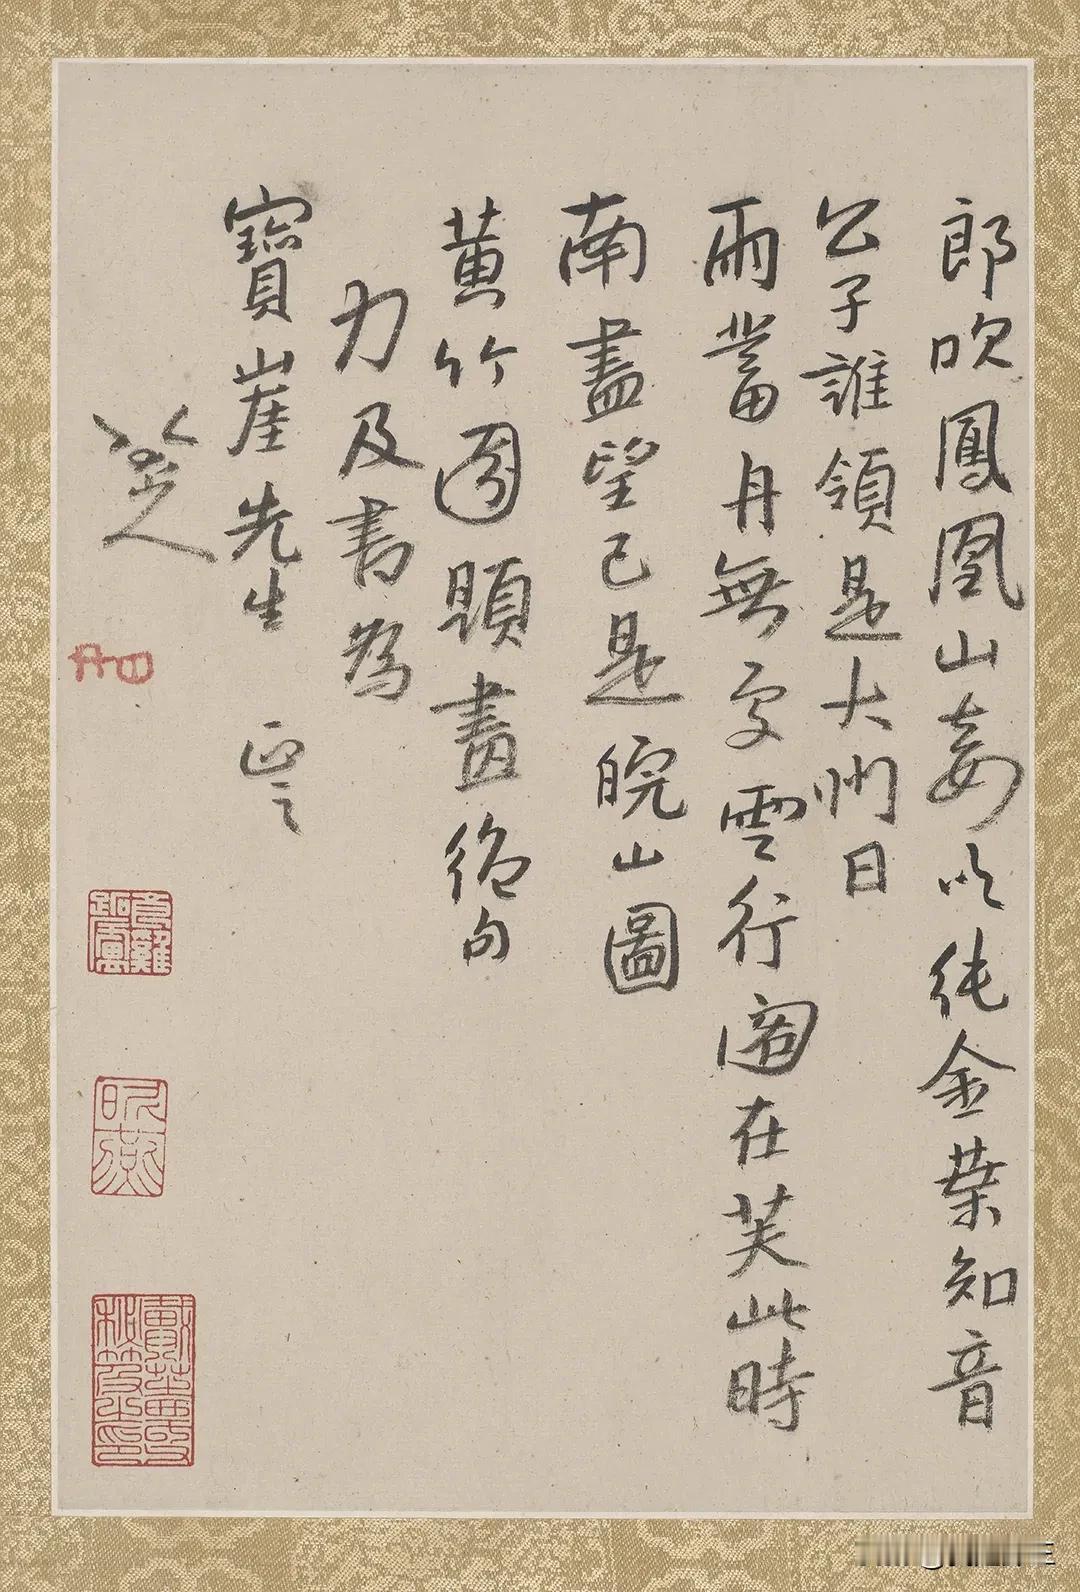 郎吹鳳凰山妾吹純金葉知音
公子誰領是大州日
雨蓄舟無處雲行閣在芙此時
南盡望已是皖山圖
黃竹園題畫絕句
力及書為
寶崖先生 正之
八大山人